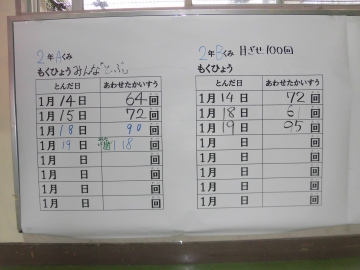 2年Aくみ
もくひょう みんなでとぶ
とんだ日 あわせたかいすう
1月14日 64回
1月15日 72回
1月18日 90回
1月19日 118回
1月 日 回
1月 日 回
1月 日 回
1月 日 回
2年Bくみ 目ざせ100回
もくひょう
とんだ日 あわせたかいすう
1月14日 72回
1月18日 61回
1月19日 95回
1月 日 回
1月 日 回
1月 日 回
1月 日 回
1月 日 回